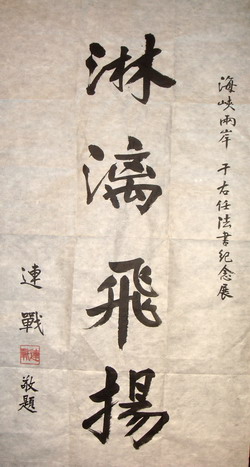 海峽兩岸 于右任法書紀念展
淋漓飛揚
連戰
敬題